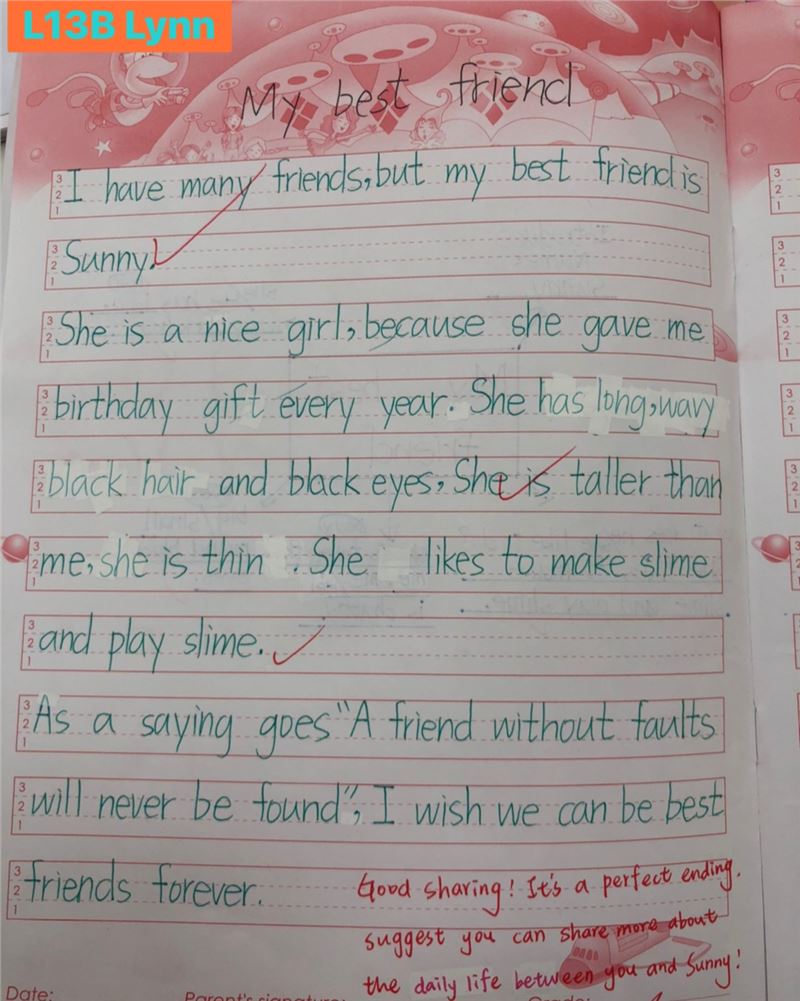 L13B Lynn
My best friend
I have many friends, but my best friend is
Sunny.
She is a nice girl, because she gave me
birthday gift every year. She has long, wavy
black hair and black eyes, She is taller than
me, she is thin . She likes to make slime
and play slime.
As a saying goes "A friend without faults
will never be found", I wish we can be best
friends forever.
Good sharing! It's a perfect ending.
suggest you can share more about
the daily life between you and Sunny!
Date:
Parent's signature: